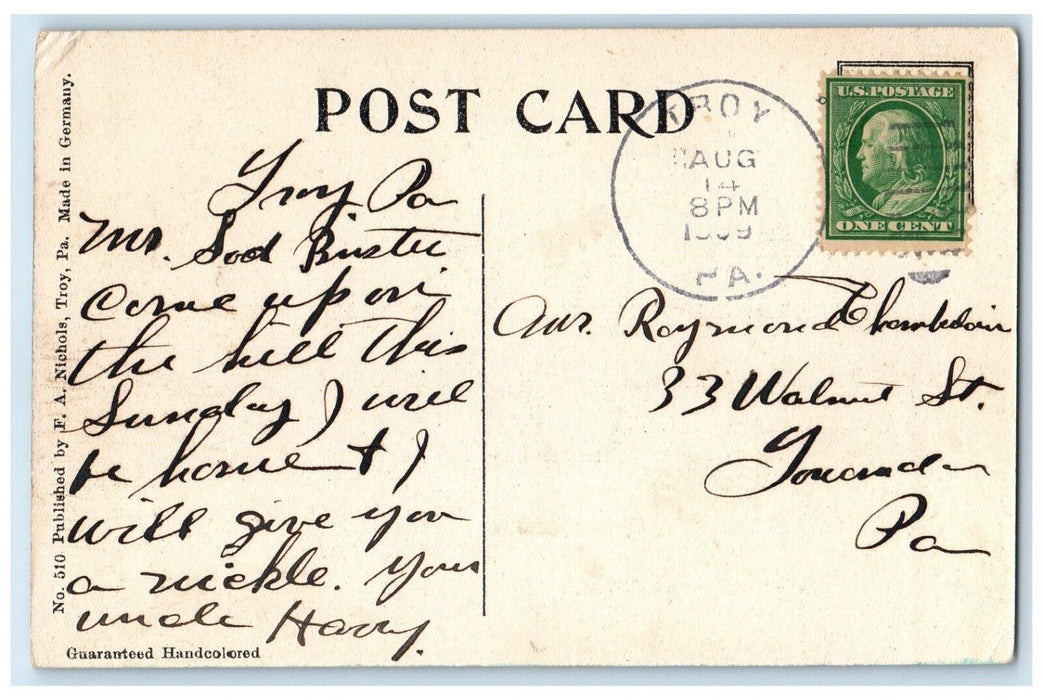 POST CARD
TROY
AUG
14
8PM
1909
PA.
U.S. POSTAGE
ONE CENT
Troy Pa
Mr. Sod Buster
Come up on
the hill this
Sunday I will
be home + I
will give you
a nickle. Your
uncle Harry.
Raymond Chamberlain
33 Walnut St.
Towanda
Pa
No. 510 Published by F. A. Nichols, Troy, Pa. Made in Germany.
Guaranteed Handcolored